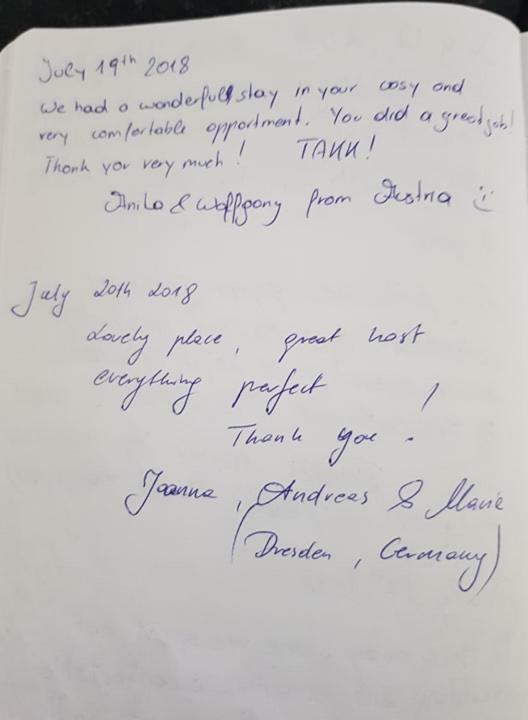 July 19th 2018
We had a wonderfull stay in your cosy and
very comfortable appartment. You did a great job!
Thank you very much! TAKK!
Anita & Wolfgang from Austria :)
July 20th 2018
Lovely place, great host
everything perfect
Thank you !
Joanna, Andreas & Marie
(Dresden, Germany)